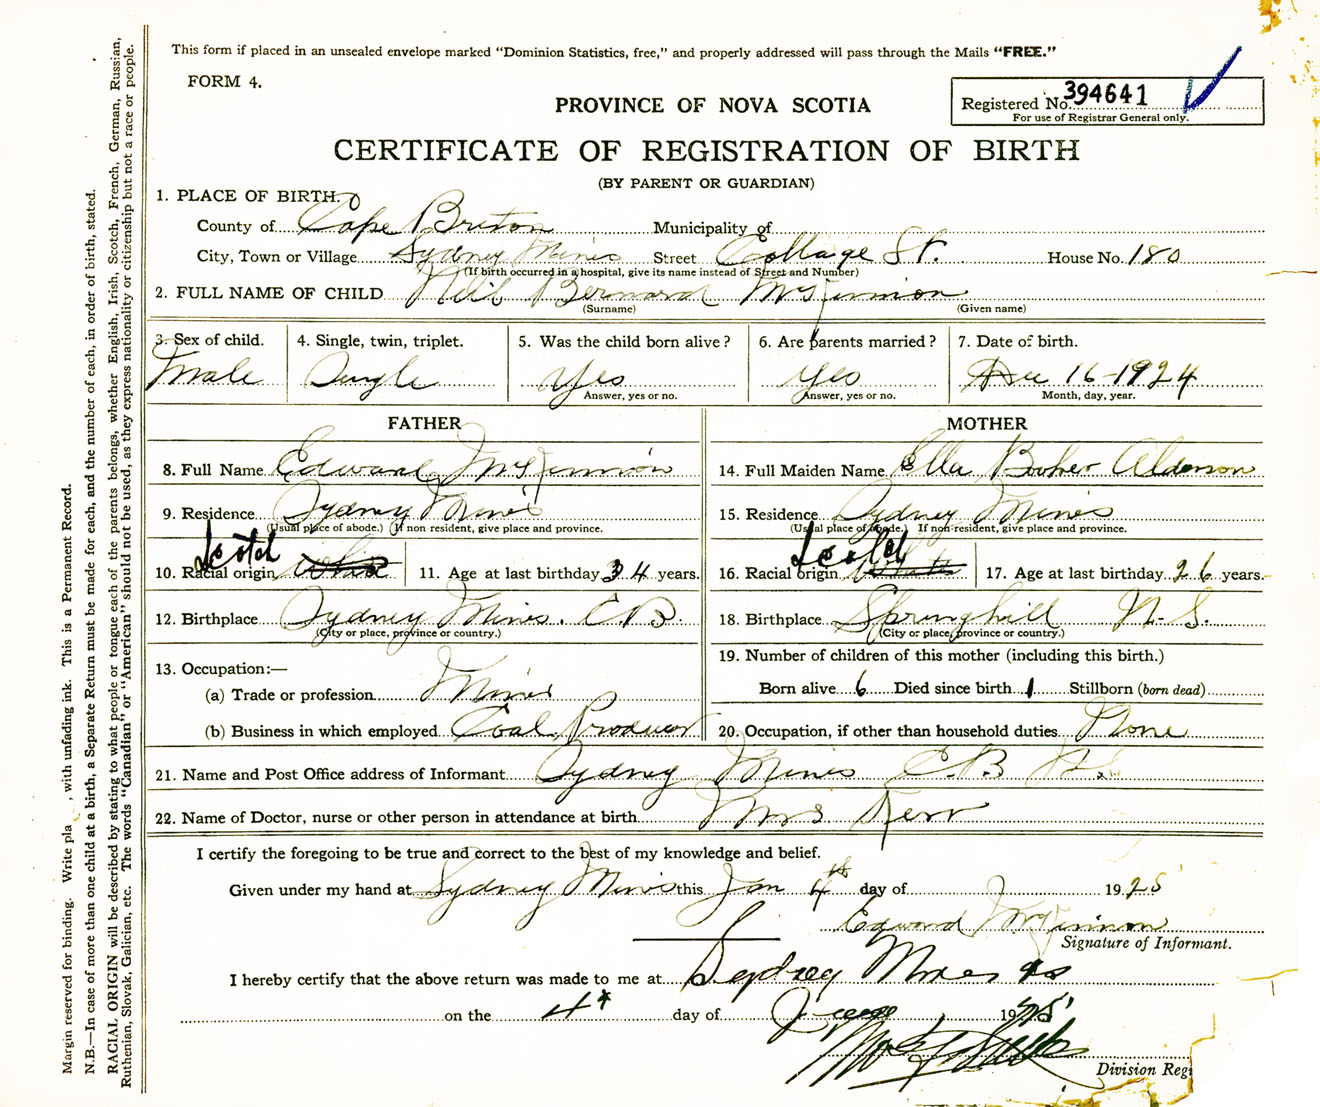 This form if placed in an unsealed envelope marked “Dominion Statistics, free,” and properly addressed will pass through the Mails “FREE.”
FORM 4.
Registered No. 394641
For use of Registrar General only.
PROVINCE OF NOVA SCOTIA
CERTIFICATE OF REGISTRATION OF BIRTH
(BY PARENT OR GUARDIAN)
1. PLACE OF BIRTH.
County of Cape Breton Municipality of
City, Town or Village Sydney Mines Street Cottage St. House No. 180
(If birth occurred in a hospital, give its name instead of Street and Number)
2. FULL NAME OF CHILD Neil Bernard McKinnon
(Surname) (Given name)
3. Sex of child. 4. Single, twin, triplet. 5. Was the child born alive? 6. Are parents married? 7. Date of birth.
Male Single Yes Yes Dec 16-1924
Answer, yes or no. Answer, yes or no. Month, day, year.
FATHER
8. Full Name Edward McKinnon
9. Residence Sydney Mines
(Usual place of abode.) (If non resident, give place and province.
Scotch
10. Racial origin White 11. Age at last birthday 34 years.
12. Birthplace Sydney Mines. C.B.
(City or place, province or country.)
13. Occupation:—
(a) Trade or profession Miner
(b) Business in which employed Coal Producer
MOTHER
14. Full Maiden Name Ella Alderson
15. Residence Sydney Mines
(Usual place of abode.) If non-resident, give place and province.
Scotch
16. Racial origin White 17. Age at last birthday 26 years.
18. Birthplace Springhill N.S.
(City or place, province or country.)
19. Number of children of this mother (including this birth.)
Born alive 6 Died since birth 1 Stillborn (born dead)
20. Occupation, if other than household duties None
21. Name and Post Office address of Informant Sydney Mines C.B
22. Name of Doctor, nurse or other person in attendance at birth Mrs Kerr
I certify the foregoing to be true and correct to the best of my knowledge and belief.
Given under my hand at Sydney Mines this Jan 4th day of 1925
Edward McKinnon
Signature of Informant.
I hereby certify that the above return was made to me at Sydney Mines
on the 4th day of 1925
Division Regi
Margin reserved for binding. Write pla , with unfading ink. This is a Permanent Record.
N.B.—In case of more than one child at a birth, a Separate Return must be made for each, and the number of each, in order of birth, stated.
RACIAL ORIGIN will be described by stating to what people or tongue each of the parents belongs, whether English, Irish, Scotch, French, German, Russian,
Ruthenian, Slovak, Galician, etc. The words “Canadian” or “American” should not be used, as they express nationality or citizenship but not a race or people.